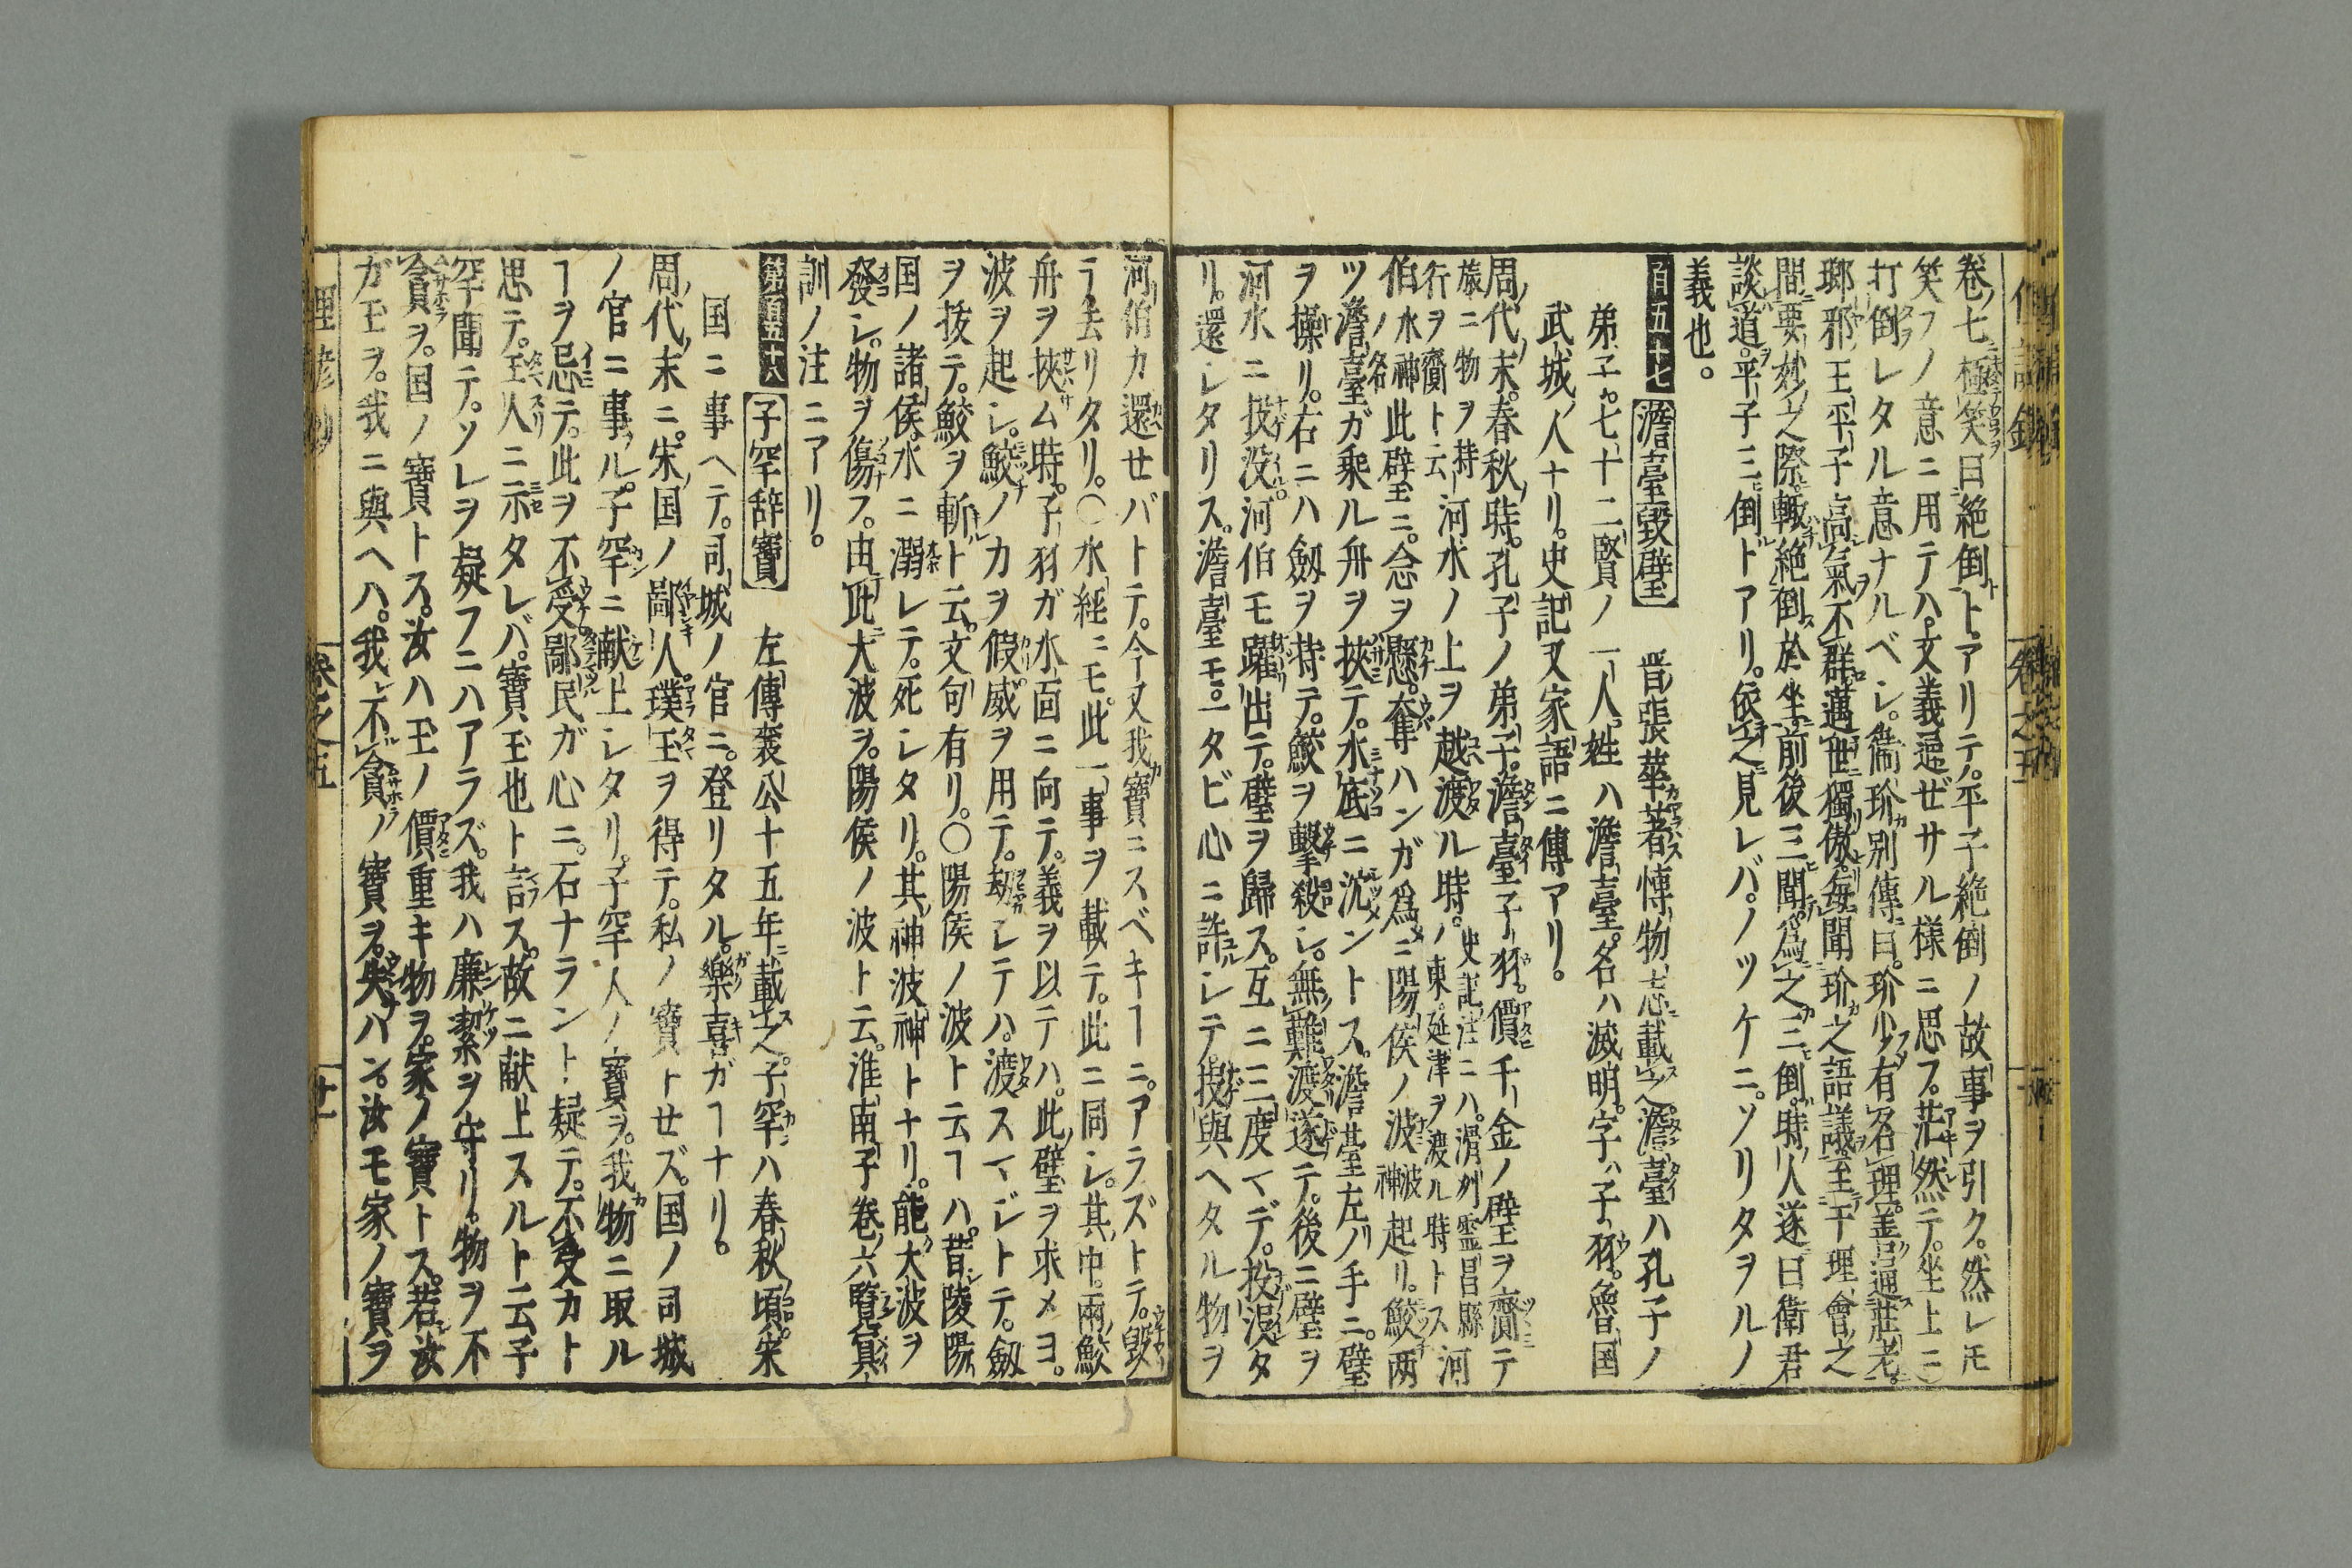 巻ノ七極笑曰絶倒トアリテ平子絶倒ノ故事ヲ引ク。然レモ
笑フノ意ニ用テハ。文義通ゼサル様ニ思フ。茫然テ。坐上ニ
打倒レタル意ナルベシ。衛玠別傳曰。玠少有名理。善通莊老。
瑯邪王平子高氣不群邁世獨傲。毎聞玠之語議至于理會之
間要妙之際。輙絶倒於坐。前後三聞。爲之三倒。時人遂曰衛君
談道。平子三倒トアリ。依之見レバ。ノツケニ。ソリタヲルノ
義也。
百五十七 澹臺毀璧 晋張華著博物志載之。澹臺ハ孔子ノ
弟子。七十二賢ノ一人。姓ハ澹臺。名ハ滅明。字ハ子羽。魯国
武城ノ人ナリ。史記又家語ニ傳アリ。
周ノ代ノ末。春秋ノ時。孔子ノ弟子。澹臺子羽。價千金ノ璧ヲ齎テ
旅ニ物ヲ持行ヲ齎ト云河水ノ上ヲ越渡ル時。史記ノ注ニハ。滑州霊昌縣ノ東。延津ヲ渡ル時トス河
伯水神ノ名此璧ニ。念ヲ懸。奪ハンガ爲ニ陽侯ノ波波神起リ。鮫両
ツ澹臺ガ乗ル舟ヲ挾テ。水底ニ沈ントス。澹臺左ノ手ニ。璧
ヲ操リ。右ニハ劔ヲ持テ。鮫ヲ撃殺シ。無難渡遂テ。後ニ璧ヲ
河水ニ投没。河伯モ躍出テ。璧ヲ歸ス。互ニ三度マデ。投浸タ
リ。還シタリス。澹臺モ。一タビ心ニ許シテ。投與ヘタル物ヲ
河伯カ還セバトテ。今又我寳ニスベキヿニ。アラズトテ。毀
テ去リタリ。〇水經ニモ。此一事ヲ載テ。此ニ同シ。其中。兩鮫
舟ヲ挾ム時。子羽ガ水面ニ向テ。義ヲ以テハ。此璧ヲ求メヨ。
波ヲ起シ。鮫ノカヲ假威ヲ用テ。劫シテハ。渡スマジトテ。劔
ヲ抜テ。鮫ヲ斬ト云。文句有リ。〇陽侯ノ波ト云フハ。昔陵陽
国ノ諸侯。水ニ溺レテ。死シタリ。其神波神トナリ。能大波ヲ
發シ。物ヲ傷フ。由此大波ヲ。陽侯ノ波ト云。淮南子巻六覽冥
訓ノ注ニアリ。
第百五十八 子罕辞寳 左傳襄公十五年載之。子罕ハ春秋ノ頃。宋
国ニ事ヘテ。司城ノ官ニ。登リタル。樂喜ガヿナリ。
周ノ代ノ末ニ。宋国ノ鄙人。璞玉ヲ得テ。私ノ寳トセズ。国ノ司城
ノ官ニ事ル。子罕ニ献上シタリ。子罕人ノ寳ヲ。我物ニ取ル
ヿヲ忌テ。此ヲ不受。鄙民ガ心ニ。石ナラント疑テ。不受カト
思テ。玉人ニ示タレバ。寳玉也ト訁ス。故ニ献上スルト云子
罕聞テ。ソレヲ疑フニハアラズ。我ハ廉潔ヲ守リ。物ヲ不
貪ヲ。国ノ寳トス。汝ハ玉ノ價重キ物ヲ。家ノ寳トス。若汝
ガ玉ヲ。我ニ與ヘハ。我不貪ノ寳ヲ。失ハン。汝モ家ノ寳ヲ
理諺抄
巻之五
廿一